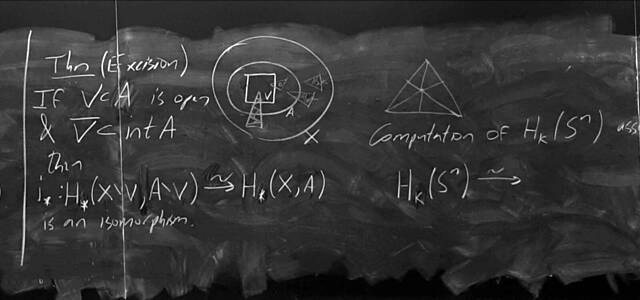 Thm (Excision)
If V⊂A is open
& V̅⊂intA
then
i_*: H_*(X∖V, A∖V) →̃ H_*(X, A)
is an isomorphism.
V
A
X
Computation of H_k(S^n)
H_k(S^n) →̃